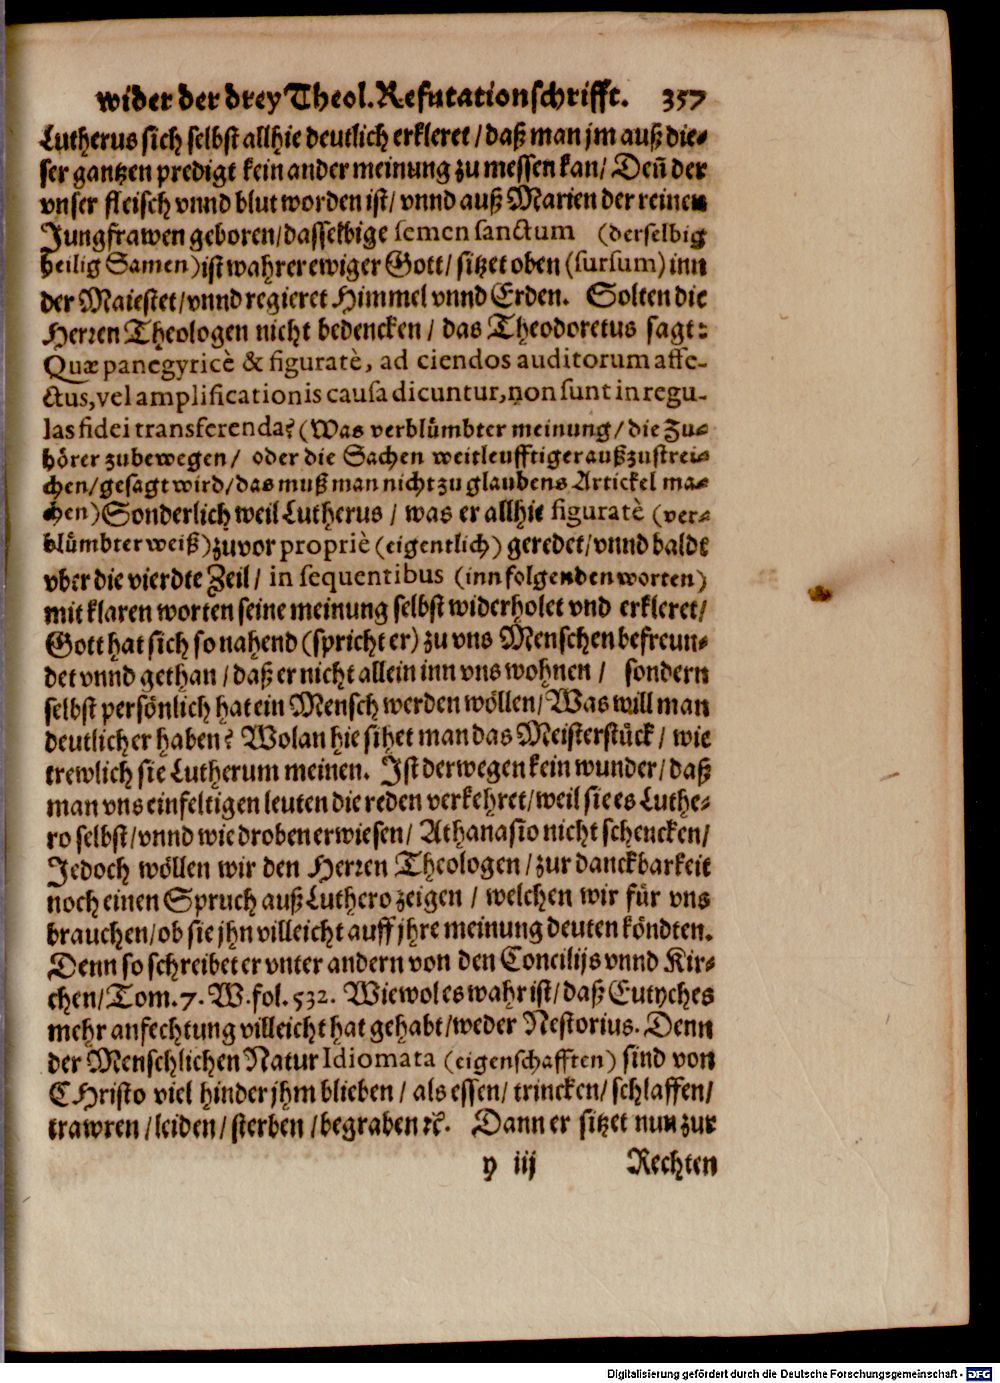 wider der drey Theol. Refutationschrifft. 357
Lutherus sich selbst allhie deutlich erkleret / daß man jm auß die-
ser gantzen predigt kein ander meinung zu messen kan / Deñ der
vnser fleisch vnnd blut worden ist / vnnd auß Marien der reinen
Jungfrawen geboren / dasselbige semen sanctum (derselbig
heilig Samen) ist wahrer ewiger Gott / sitzet oben (sursum) inn
der Maiestet / vnnd regieret Himmel vnnd Erden. Solten die
Herren Theologen nicht bedencken / das Theodoretus sagt:
Quæ panegyricè & figuratè, ad ciendos auditorum affe-
ctus, vel amplificationis causa dicuntur, non sunt in regu-
las fidei transferenda? (Was verblůmbter meinung / die Zu-
hörer zubewegen / oder die Sachen weitleufftiger außzustrei-
chen / gesagt wird / das muß man nicht zu glaubens Artickel ma-
chen) Sonderlich weil Lutherus / was er allhie figuratè (ver-
blůmbter weiß) zuvor propriè (eigentlich) geredet / vnnd baldt
vber die vierdte Zeil / in sequentibus (inn folgenden worten)
mit klaren worten seine meinung selbst widerholet vnd erkleret /
Gott hat sich so nahend (spricht er) zu vns Menschen befreun-
det vnnd gethan / daß er nicht allein inn vns wohnen / sondern
selbst persönlich hat ein Mensch werden wöllen / Was will man
deutlicher haben? Wolan hie sihet man das Meisterstück / wie
trewlich sie Lutherum meinen. Ist derwegen kein wunder / daß
man vns einfeltigen leuten die reden verkehret / weil sie es Luthe-
ro selbst / vnnd wie droben erwiesen / Athanasio nicht schencken /
Jedoch wöllen wir den Herren Theologen / zur danckbarkeit
noch einen Spruch auß Luthero zeigen / welchen wir für vns
brauchen / ob sie jhn villeicht auff jhre meinung deuten köndten.
Denn so schreibet er vnter andern von den Concilijs vnnd Kir-
chen / Tom. 7. W. fol. 532. Wiewol es wahr ist / daß Eutyches
mehr anfechtung villeicht hat gehabt / weder Nestorius. Denn
der Menschlichen Natur Idiomata (eigenschafften) sind von
CHristo viel hinder jhm blieben / als essen / trincken / schlaffen /
trawren / leiden / sterben / begraben ꝛc. Dann er sitzet nun zur
y iij Rechten
Digitalisierung gefördert durch die Deutsche Forschungsgemeinschaft - DFG